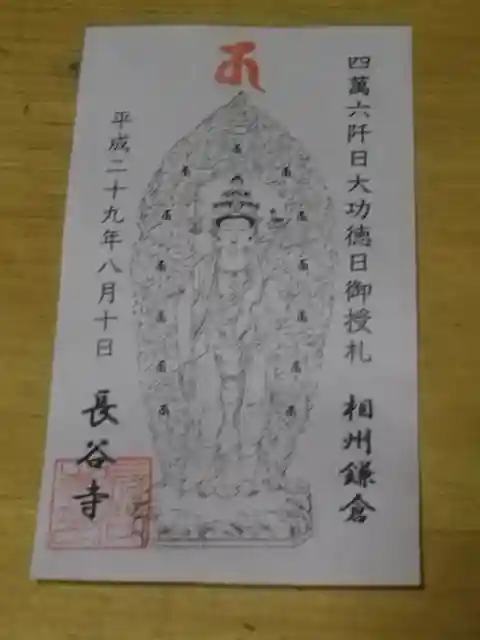 四萬六阡日大功德日御授札 相州鎌倉
平成二十九年八月十日
長谷寺